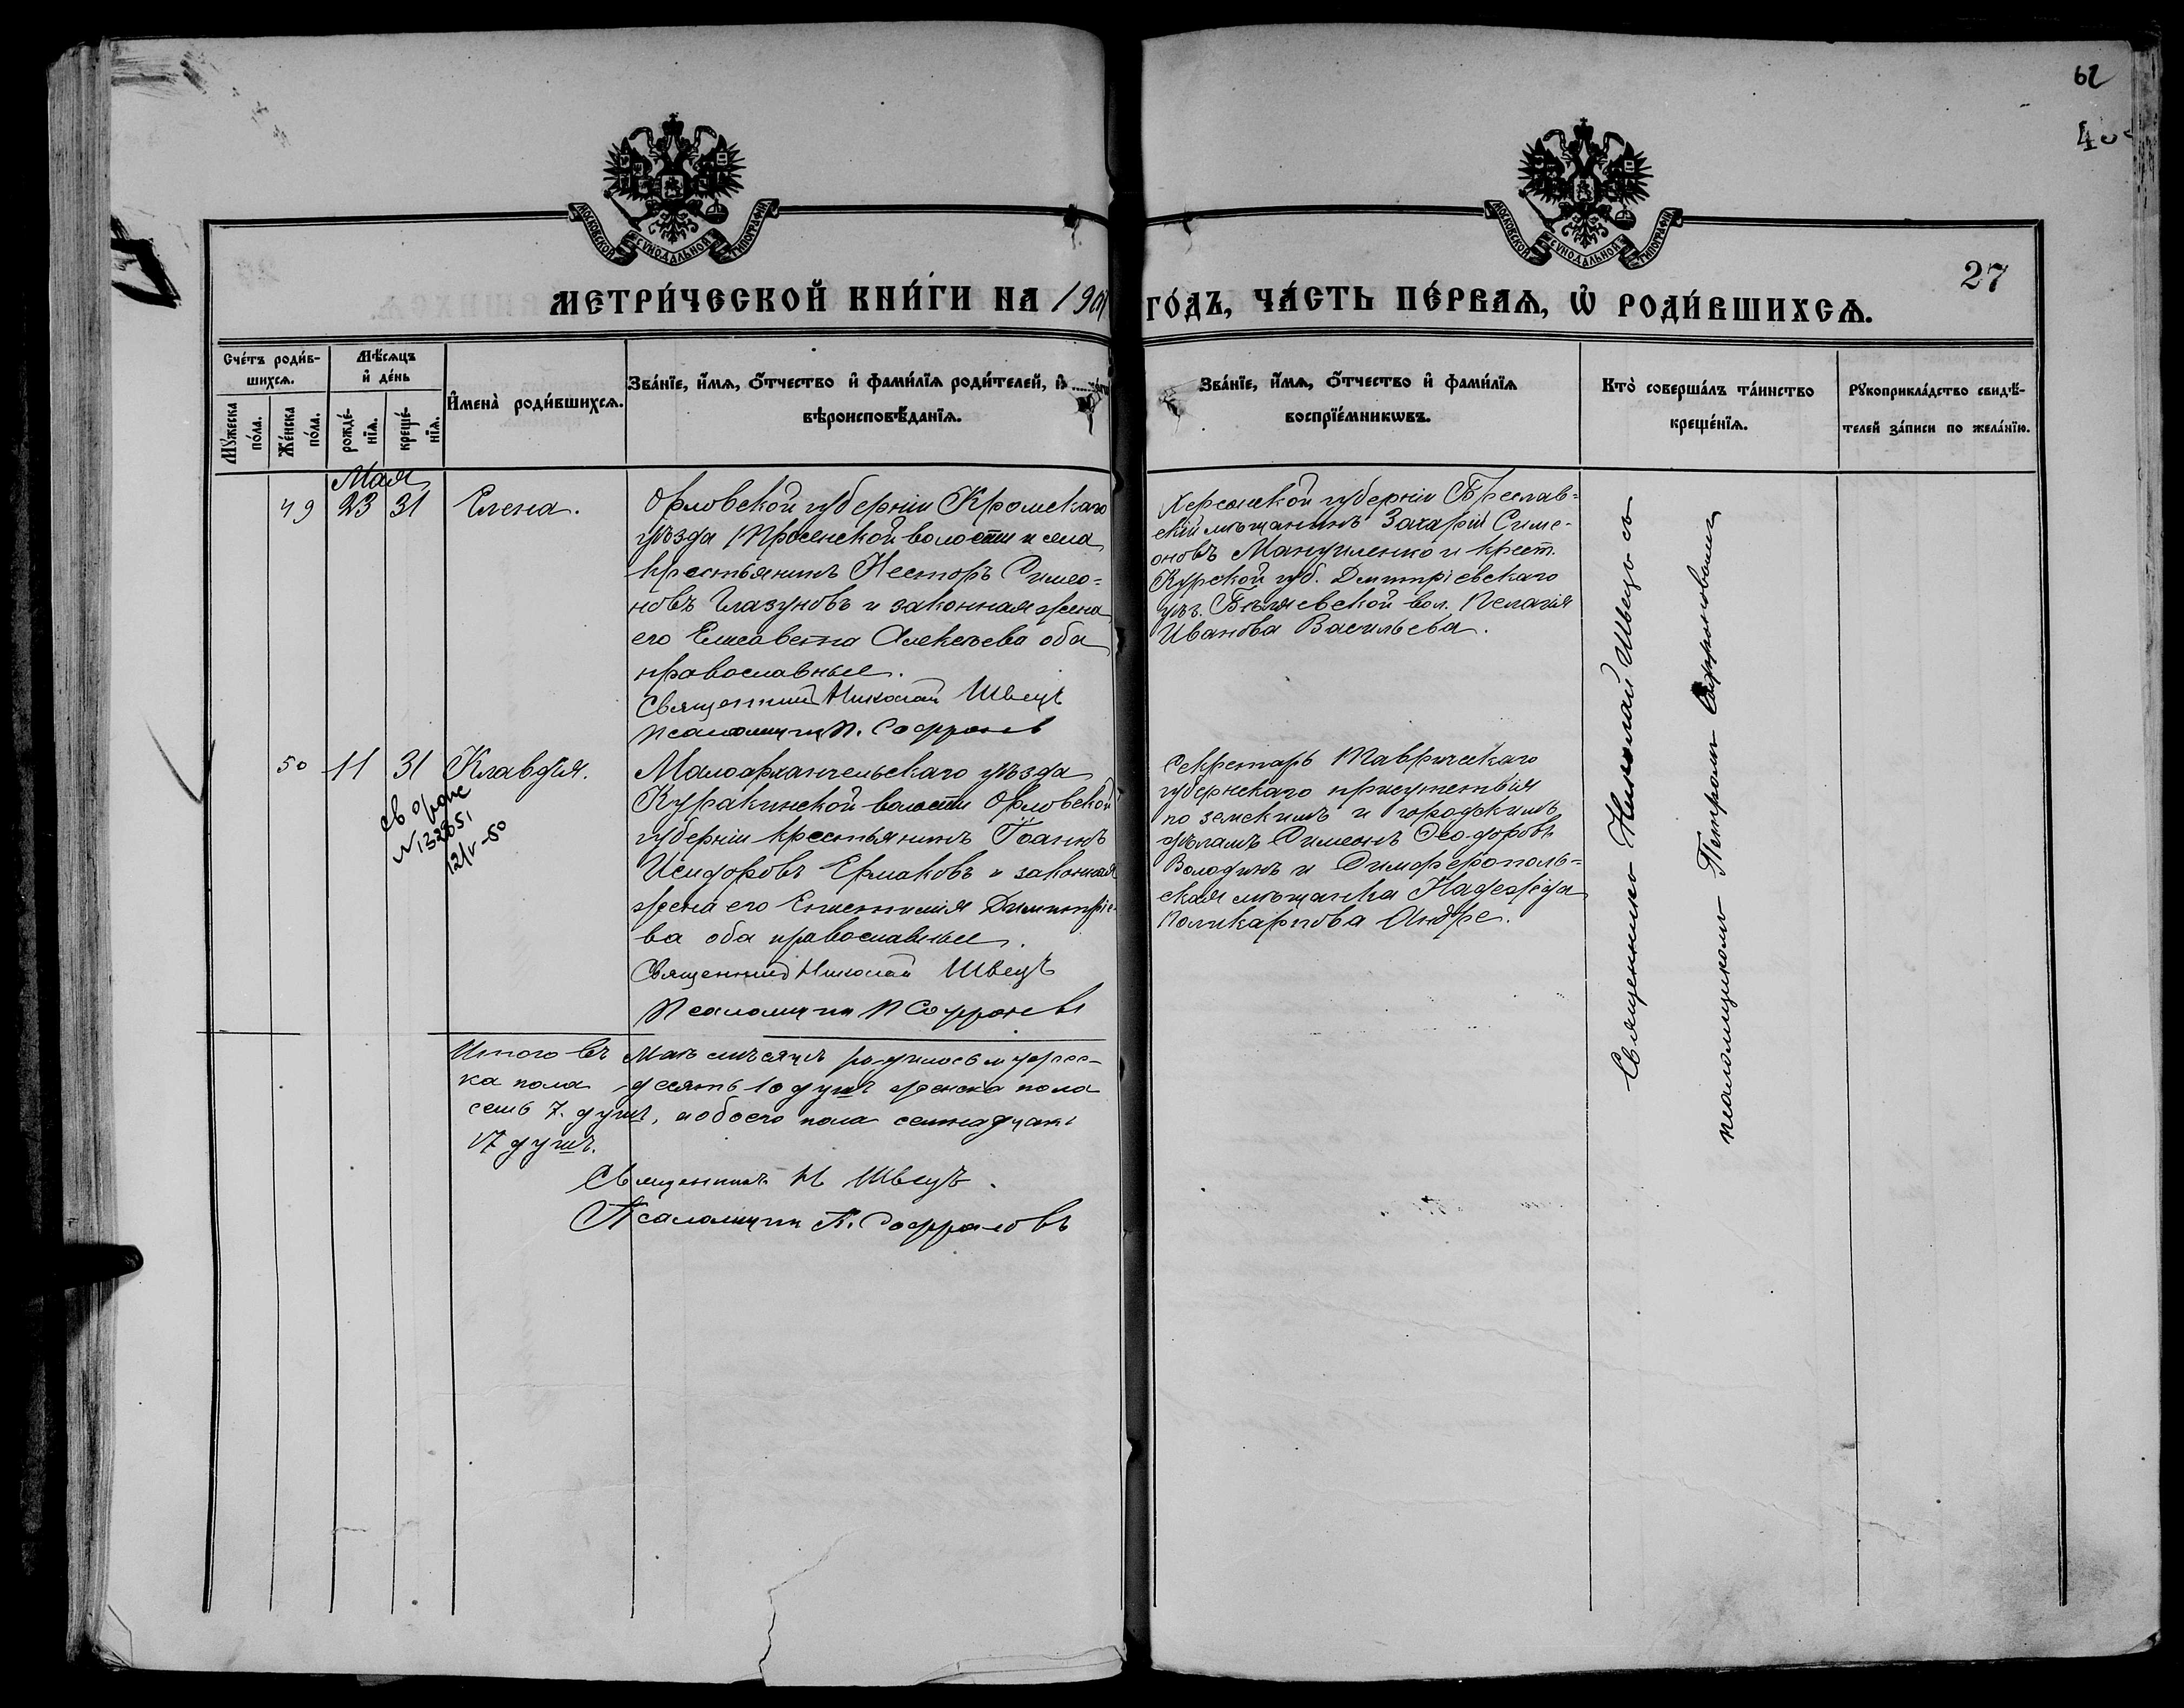 62
МОСКОВСКОЙ СУНОДАЛЬНОЙ ТИПОГРАФІИ
МОСКОВСКОЙ СУНОДАЛЬНОЙ ТИПОГРАФІИ
27
МЕТРИ́ЧЕСКОЙ КНИ́ГИ НА 190
ГО́ДЪ, ЧА́СТЬ ПЕ́РВАѦ, Ѡ҆ РОДИ́ВШИХСѦ.
Сче́тъ роди́в-
шихсѧ.
Мꙋ́жеска по́ла.
Же́нска по́ла.
Мѣ́сѧцъ
и҆ де́нь
рожде́-нїѧ.
креще́-нїѧ.
И҆мена̀ роди́вшихсѧ.
Зва́нїе, и҆́мѧ, ѻ҆́тчество и҆ фами́лїѧ роди́телей, и҆
вѣроисповѣ́данїѧ.
Зва́нїе, и҆́мѧ, ѻ҆́тчество и҆ фами́лїѧ
воспрїе́мникѡвъ.
Кто̀ соверша́лъ та́инство
креще́нїѧ.
Рꙋкоприкла́дство свидѣ́-
телей за́писи по жела́нїю.
Мая
49 23 31 Елена.
Орловской губерніи Кромскаго
уѣзда волости и села
крестьянинъ Несторъ Симео-
новъ Глазуновъ и законная жена
его Елисавета Алексѣева оба
православные.
Священникъ Николай Швецъ
Псаломщик П. Софронов
Херсонской губерніи Береслав-
скій мѣщанинъ Захарій Симе-
оновъ Мануиленко и крест.
Курской губ. Димитріевскаго
уѣз. Бѣляевской вол. Пелагія
Иванова Васильева.
50 11 31 Клавдія.
№ 132851
12/V-50
Малоархангельскаго уѣзда
Куракинской волости Орловской
губерніи крестьянинъ Іоаннъ
Исидоровъ Ермаковъ и законная
жена его Епистимія Димитріе-
ва оба православные.
Священникъ Николай Швецъ
Псаломщик П Софроновъ
Секретарь Таврическаго
губернскаго присутствія
по земскимъ и городскимъ
дѣламъ Симеонъ Ѳеодоровъ
Володинъ и Симферополь-
ская мѣщанка Надежда
Поликарпова Андре.
Священникъ Николай Швецъ съ
псаломщикомъ Петромъ Софроновымъ
Итого въ Маѣ мѣсяцѣ родилось мужес-
ка пола десять 10 душъ женска пола
семь 7. душъ, а обоего пола семнадцать
17 душъ.
Священникъ Н Швецъ.
Псаломщик П. Софроновъ